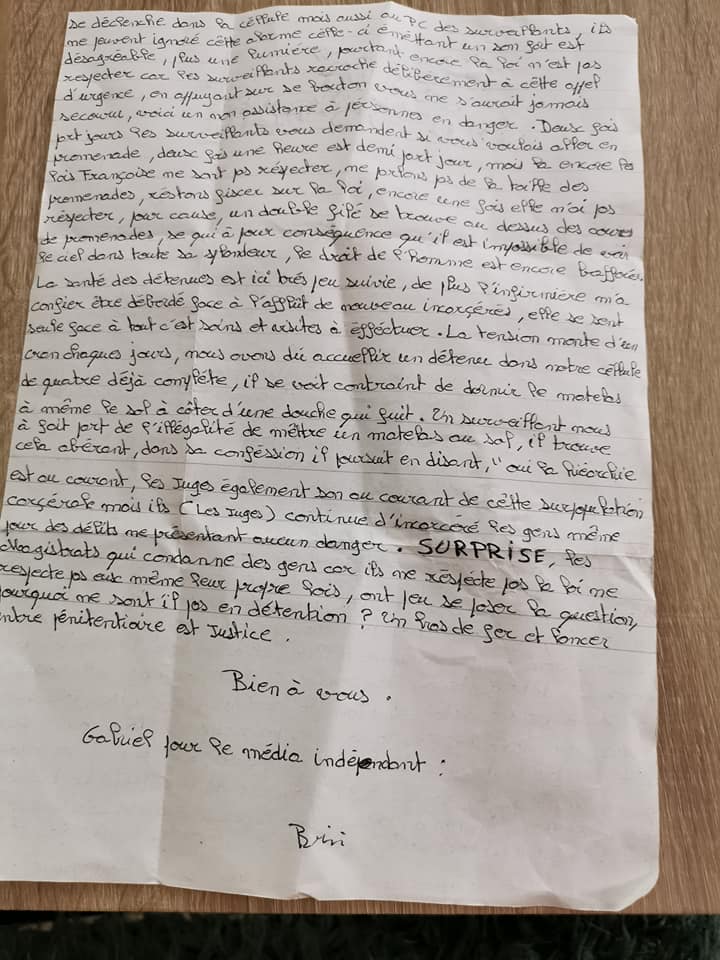 se déclenche dans la céllule mais aussi au PC des surveillants, ils
ne peuvent ignoré cétte alarme célle-ci émettant un son fort est
désagréable, plus une lumière, pourtant encore la loi n'est pas
respecter car les surveillants racroche délibérement à cétte appel
d'urgence, en appuyant sur se bouton vous ne s'aurait jamais
secouru, voici un non assistance à pérsonnes en danger. Deux fois
part jours les surveillants vous demandent si vous voulais aller en
promenade, deux fois une heure est demi part jour, mais la encore les
lois Françoise ne sont pas réspecter, ne parlons pas de la taille des
promenades, réstons fixcer sur la loi, encore une fois elle n'ai pas
réspécter, pour cause, un double filé se trouve au dessus des cours
de promenades, se qui à pour conséquence qu'il est impossible de voir
le ciel dans toute sa splendeur, le droit de l'Homme est encore baffouer.
La santé des détenues est ici trés peu suivie, de plus l'infirmière m'a
confier être débordé face à l'afflût de nouveau incarçérés, elle se sent
seule face à tout c'est soins et visites à éfféctuer. La tension monte d'un
cran chaques jours, nous avons dû accueillir un détenu dans notre céllule
de quatre déjà compléte, il se voit contraint de dormir le matelas
à même le sol à côter d'une douche qui fuit. Un surveillant nous
à fait part de l'illégalité de mêttre un matelas au sol, il trouve
cela abérant, dans sa conféssion il poursuit en disant, "oui la hiéarchie
est au courant, les Juges également son au courant de cétte surpopulation
carçérale mais ils (Les Juges) continue d'incarcéré les gens même
pour des délits ne présentant aucun danger. SURPRISE, les
Magistrats qui condanne des gens car ils ne réspécte pas la loi ne
respecte pas eux même leur propre lois, ont peu se poser la question,
pourquoi ne sont il pas en détention? Un bras de fer et lancer
entre pénitentiaire est Justice.
Bien à vous.
Gabriel pour le média indépendant: